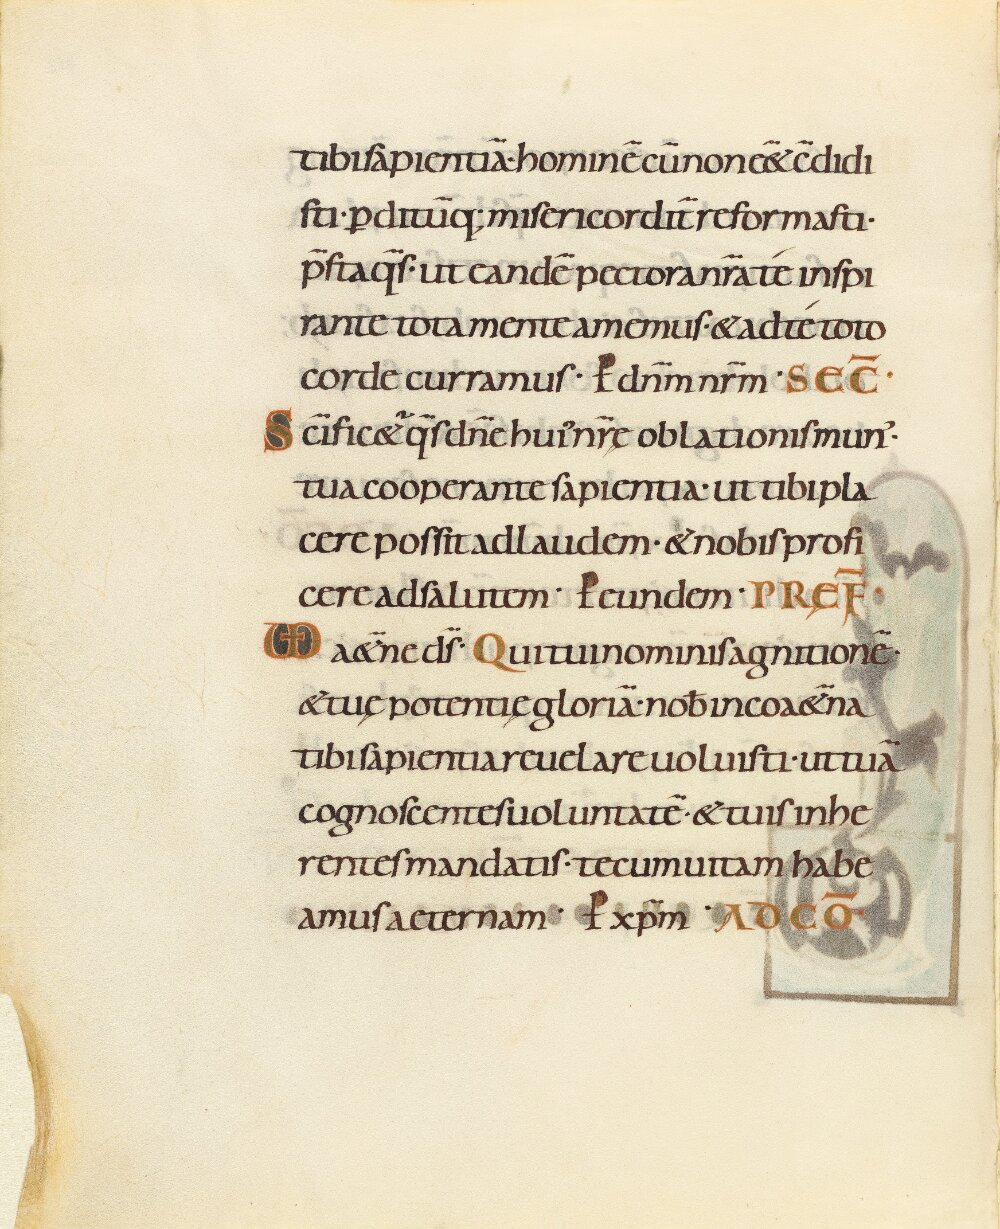 tibi sapientiā· hominē cū non eēt & c̄didi
sti· ꝑditūq; misericordit̄ reformasti·
p̄sta qs̄· ut eandē pectora nr̄a té inspi
rante tota mente amemus· & ad té toto
corde curramus· P dnm̄ nrm̄· SEC̄·
Sc̄ific&ᷣ qs̄ dn̄e hui᾽ nr̄ę oblationis mun᾽·
tua cooperante sapientia· ut tibi pla
cere possit ad laudem· & nobis profi
cere ad salutem· P eundem· PREF̄·
VD a&n̄e ds̄· Qui tui nominis agnitionē·
& tuę potentię gloriā· nob̄ in coa&n̄a
tibi sapientia reuelare uoluisti· ut tuā
cognoscentes uoluntatē· & tuis inhe
rentes mandatis· tecum uitam habe
amus aeternam· P xp̄m· AD CŌ·